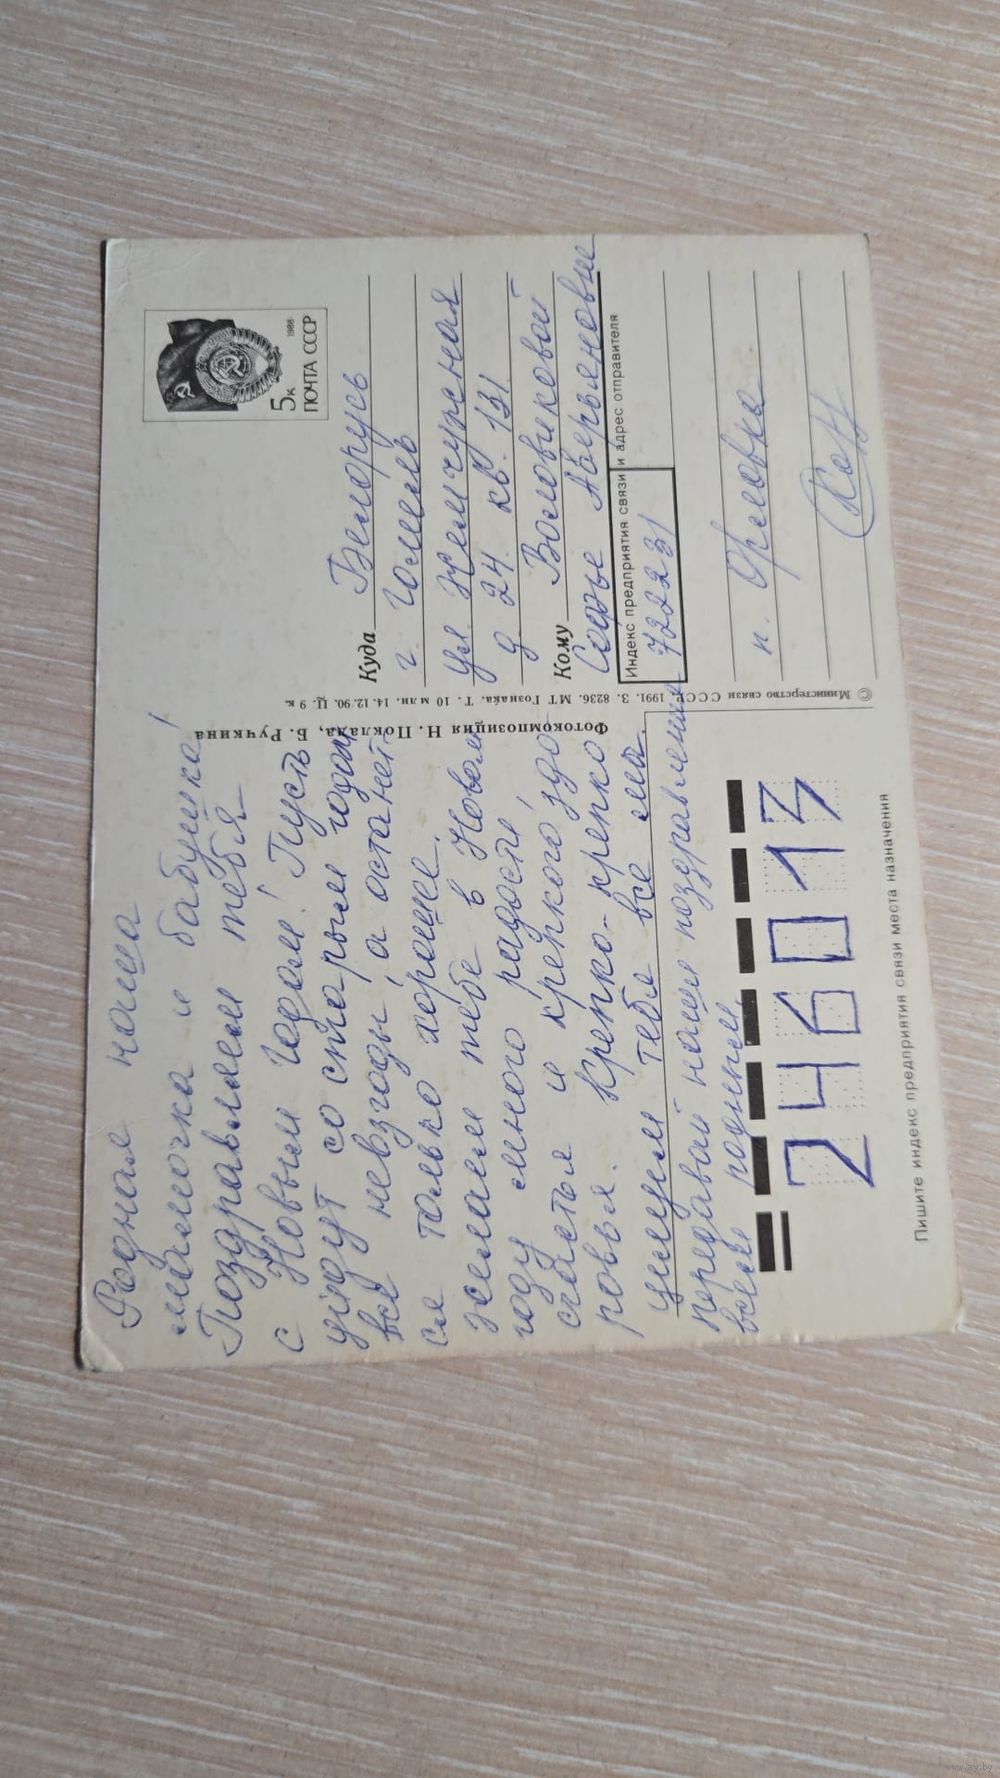 Родная наша
мамочка и бабушка!
Поздравляем тебя
с Новым годом! Пусть
уйдут со старым годом
все невзгоды, а останет
ся только хорошее.
Желаем тебе в Новом
году много радости,
счастья и крепкого здо-
ровья. Крепко-крепко
целуем тебя все мы.
передавай наши поздравления
всем родным.
246013
Пишите индекс предприятия связи места назначения
Фотокомпозиция Н. Поклада, Б. Ручкина
© Министерство связи СССР. 1991. З. 8236. МТ Гознака. Т. 10 млн. 14.12.90. Ц. 9 к.
5к
1988
ПОЧТА СССР
Куда Беларусь
г. Гомель
ул. Жемчужная
д 24 кв. 131
Кому Воловиковой
Софье Аверьяновне
Индекс предприятия связи и адрес отправителя
722231
п. Орловка
www.ay.by